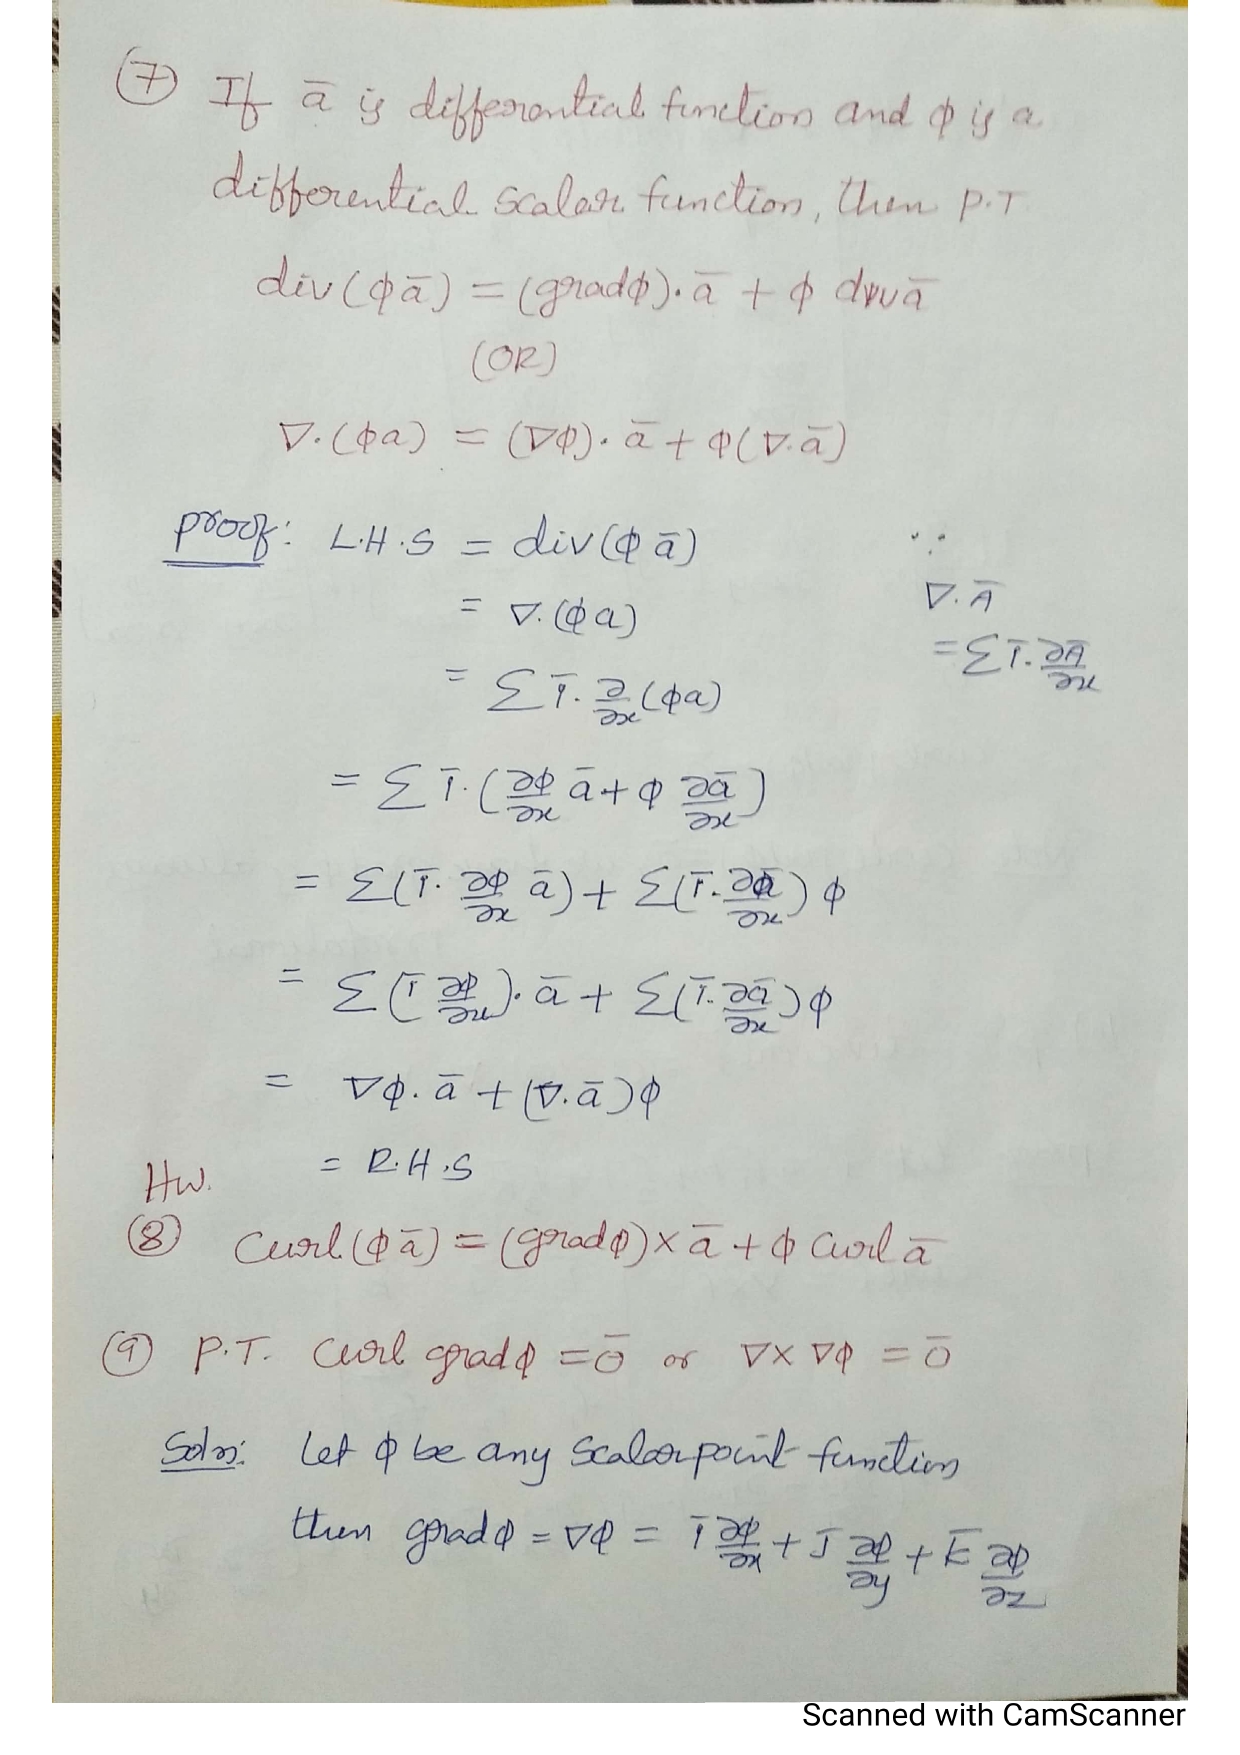 (7) If a̅ is differential function and ϕ is a
differential scalar function, then P.T
div(ϕa̅) = (gradϕ)·a̅ + ϕ div a̅
(OR)
∇·(ϕa) = (∇ϕ)·a̅ + ϕ(∇.a̅)
proof: L.H.S = div(ϕ a̅)
= ∇.(ϕa)
= Σ i̅. ∂/∂x (ϕa)
∵
∇.A̅
= Σ i̅. ∂A̅/∂x
= Σ i̅.(∂ϕ/∂x a̅ + ϕ ∂a̅/∂x)
= Σ(i̅. ∂ϕ/∂x a̅) + Σ(i̅. ∂a̅/∂x) ϕ
= Σ(i̅ ∂ϕ/∂x). a̅ + Σ(i̅. ∂a̅/∂x)ϕ
= ∇ϕ. a̅ + (∇.a̅)ϕ
= R.H.S
Hw.
(8) Curl(ϕa̅) = (gradϕ)× a̅ + ϕ Curl a̅
(9) P.T. Curl gradϕ = 0̅ or ∇×∇ϕ = 0̅
Soln: Let ϕ be any Scalar point function
then gradϕ = ∇ϕ = i̅ ∂ϕ/∂x + j̅ ∂ϕ/∂y + k̅ ∂ϕ/∂z
Scanned with CamScanner